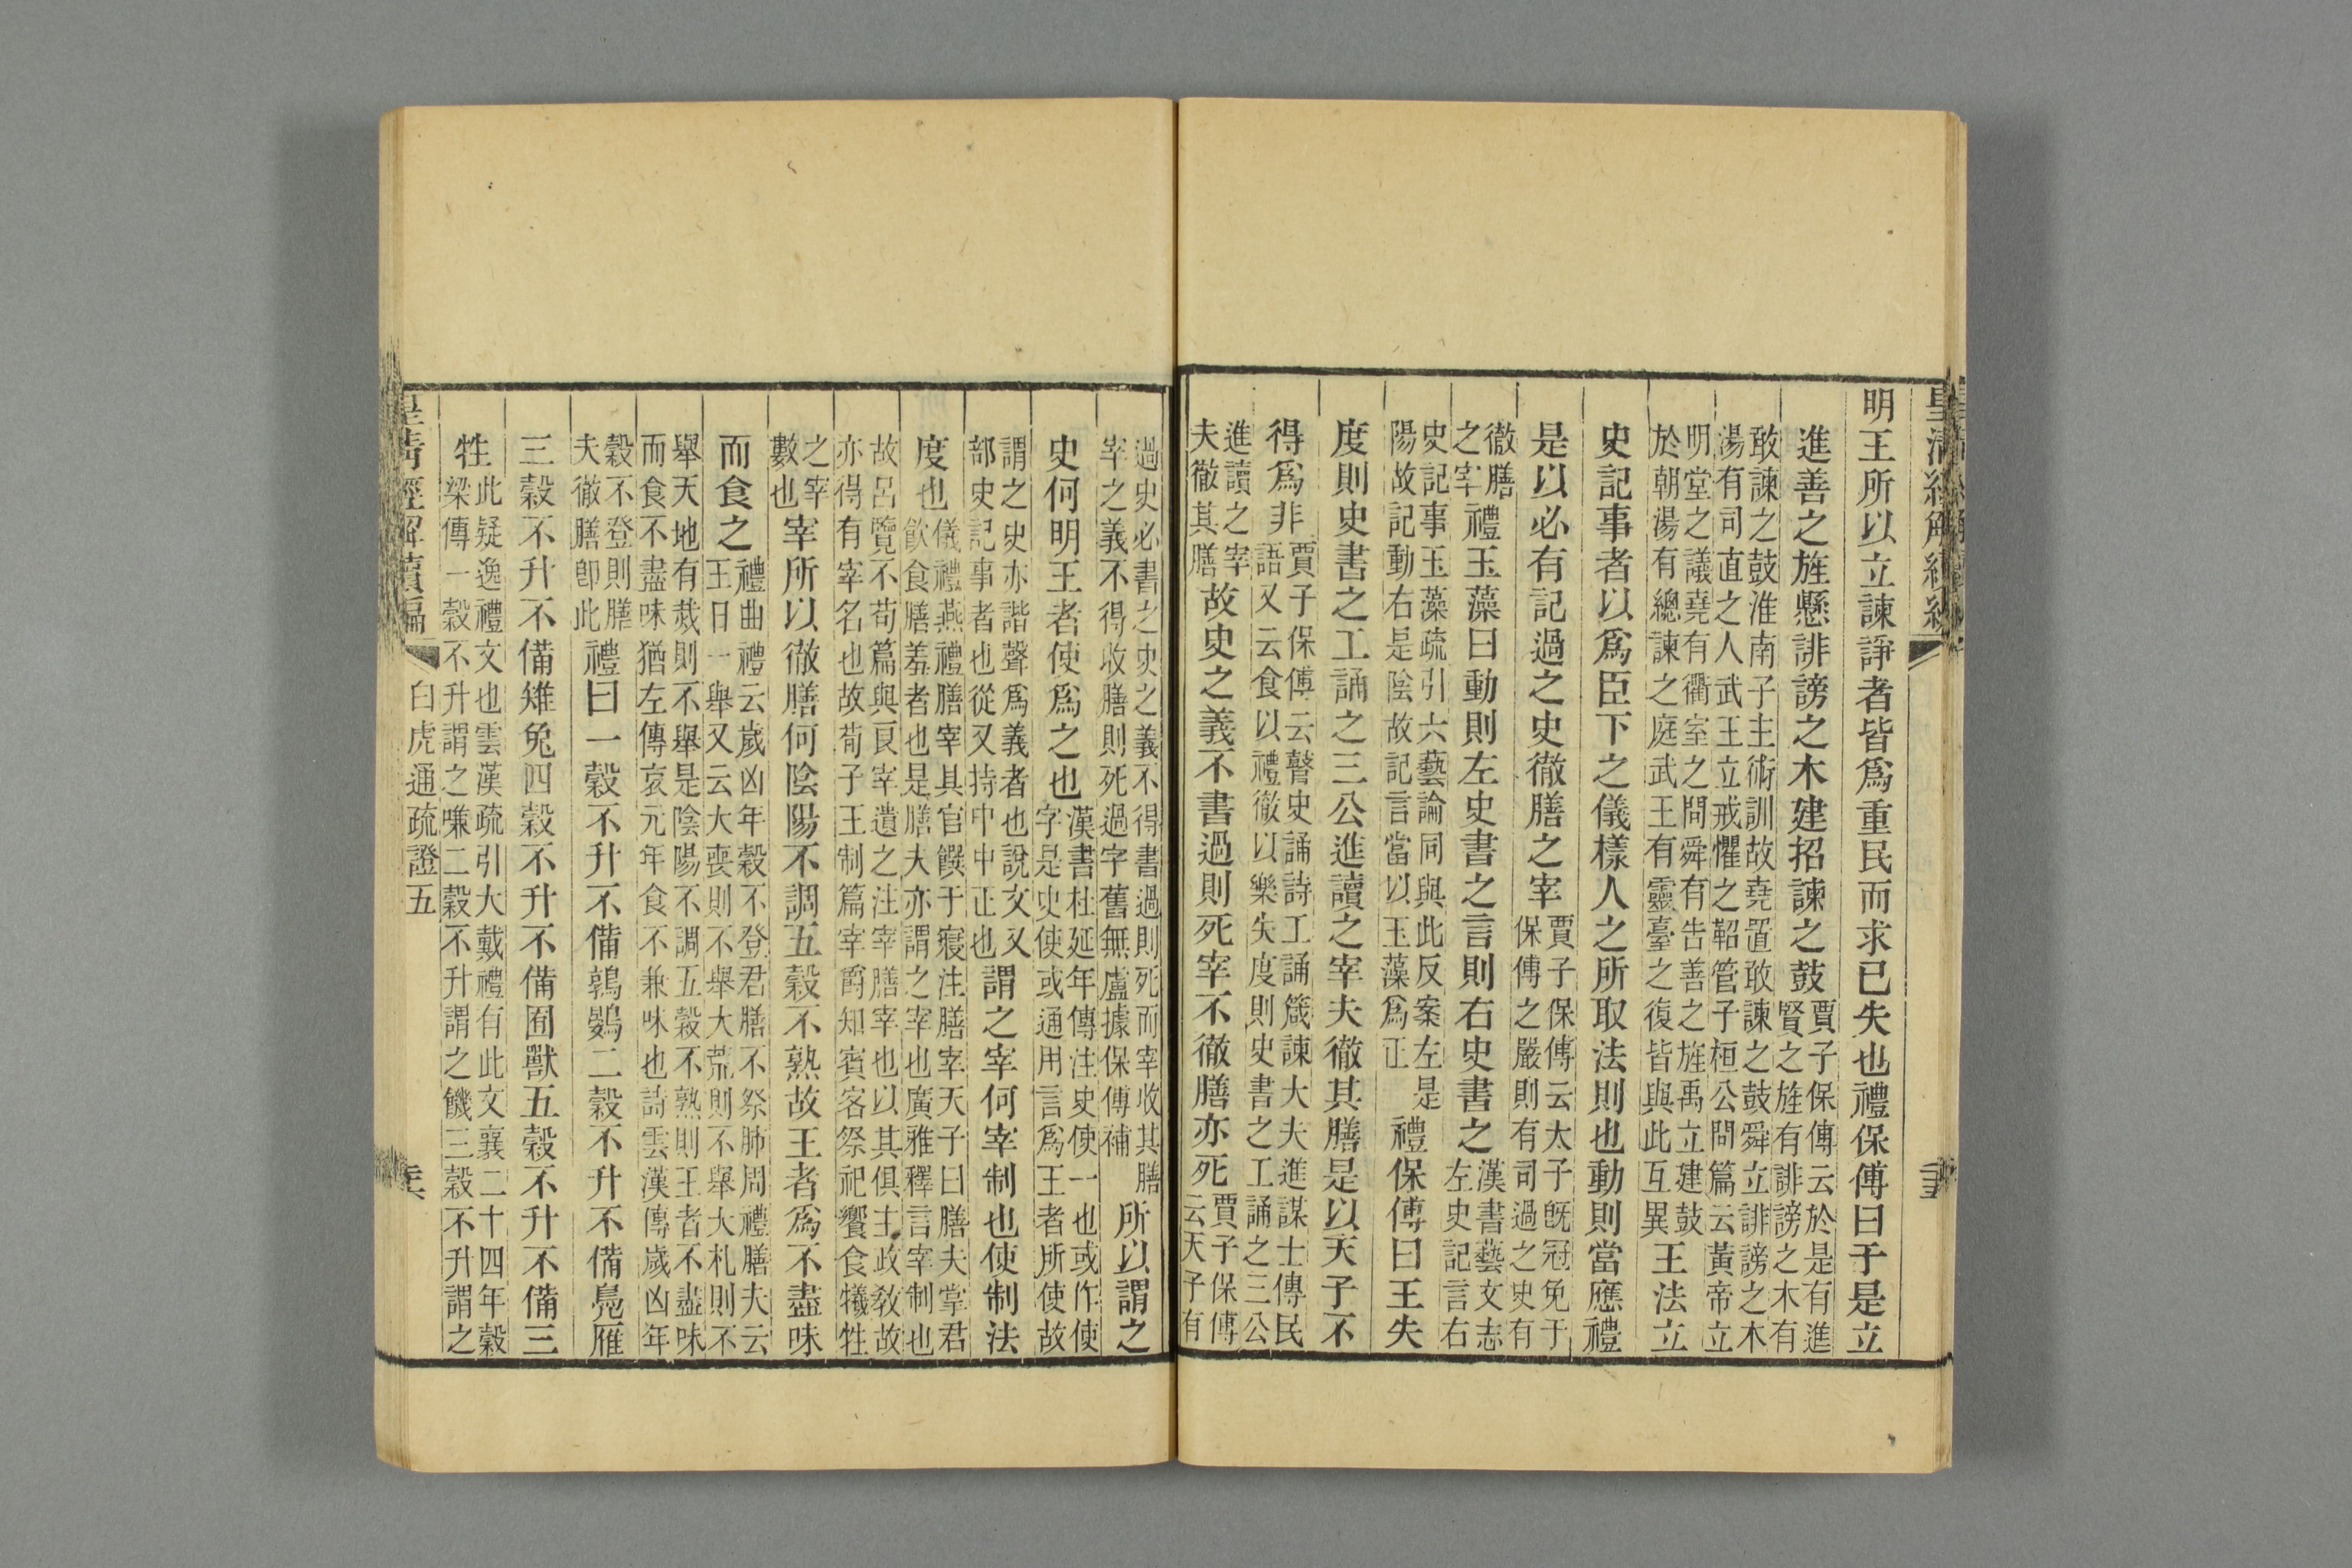 皇清經解續編
明王所以立諫諍者皆爲重民而求已失也禮保傅曰于是立
進善之旌懸誹謗之木建招諫之鼓賈子保傅云於是有進賢之旌有誹謗之木有
敢諫之鼓淮南子主術訓故堯置敢諫之鼓舜立誹謗之木湯有司直之人武王立戒懼之鞀管子桓公問篇云黃帝立
明堂之議堯有衢室之問舜有告善之旌禹立建鼓於朝湯有總諫之庭武王有靈臺之復皆與此互異王法立
史記事者以爲臣下之儀樣人之所取法則也動則當應禮
是以必有記過之史徹膳之宰賈子保傅云太子旣冠免于保傅之嚴則有司過之史有
徹膳之宰禮玉藻曰動則左史書之言則右史書之漢書藝文志左史記言右
史記事玉藻疏引六藝論同與此反案左是陽故記動右是陰故記言當以玉藻爲正禮保傅曰王失
度則史書之工誦之三公進讀之宰夫徹其膳是以天子不
得爲非賈子保傅云瞽史誦詩工誦箴諫大夫進謀士傳民語又云食以禮徹以樂失度則史書之工誦之三公
進讀之宰夫徹其膳故史之義不書過則死宰不徹膳亦死賈子保傅云天子有
過史必書之史之義不得書過則死而宰收其膳宰之義不得收膳則死過字舊無盧據保傅補所以謂之
史何明王者使爲之也漢書杜延年傳注史使一也或作使字是史使或通用言爲王者所使故
謂之史亦諧聲爲義者也說文又部史記事者也從又持中中正也謂之宰何宰制也使制法
度也儀禮燕禮膳宰其官饌于寢注膳宰天子曰膳夫掌君飲食膳羞者也是膳夫亦謂之宰也廣雅釋言宰制也
故呂覽不苟篇與良宰遺之注宰膳宰也以其俱主政教故亦得有宰名也故荀子王制篇宰爵知賓客祭祀饗食犧牲
之宰數也宰所以徹膳何陰陽不調五穀不熟故王者爲不盡味
而食之禮曲禮云歲凶年穀不登君膳不祭肺周禮膳夫云王日一舉又云大喪則不舉大荒則不舉大札則不
舉天地有烖則不舉是陰陽不調五穀不熟則王者不盡味而食不盡味猶左傳哀元年食不兼味也詩雲漢傳歲凶年
穀不登則膳夫徹膳卽此禮曰一穀不升不備鶉鷃二穀不升不備鳧雁
三穀不升不備雉兔四穀不升不備囿獸五穀不升不備三
牲此疑逸禮文也雲漢疏引大戴禮有此文襄二十四年穀梁傳一穀不升謂之嗛二穀不升謂之饑三穀不升謂之
皇清經解續編 白虎通疏證五